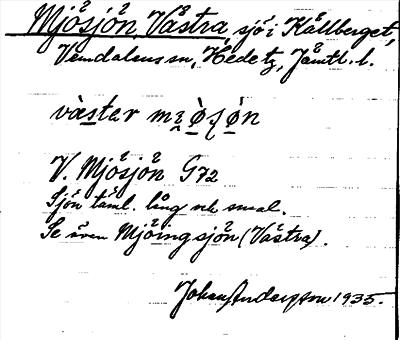 Mjösjön, Västra, sjö i Kållberget,
Vemdalens sn, Hede tg, Jämtl. l.
väster mjø̀ʃǿn
V. Mjösjön G72
Sjön täml. lång och smal.
Se även Mjöingsjön (Västra).
Johan Andersson 1935.